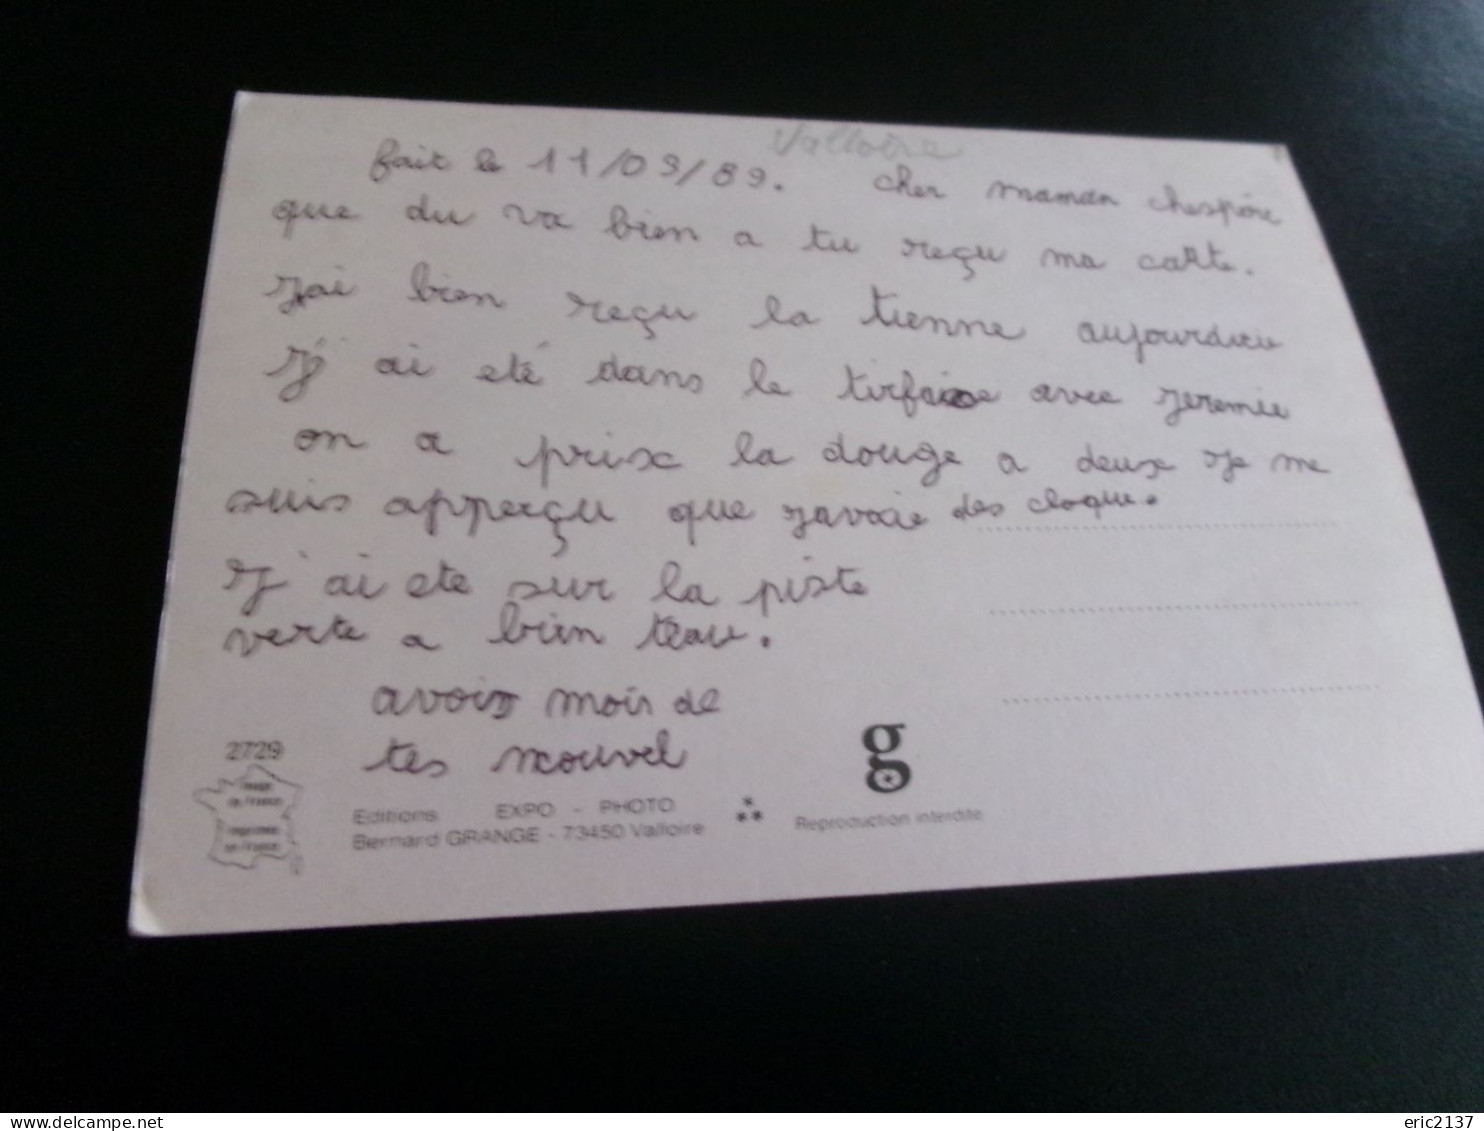 Valloire
fait le 11/03/89. cher maman chespére
que du va bien a tu reçu ma carte.
Jai bien reçu la tienne
J'ai eté dans le avec Jeremie
on a prix la douge a deux Je me
suis apperçu que Javaie des cloque.
J'ai ete sur la piste
verte a bien
avois moin de
tes nouvel
2729
Image
de France
Imprimée
en France
Editions EXPO - PHOTO
Bernard GRANGE - 73450 Valloire
g
Reproduction interdite
eric2137